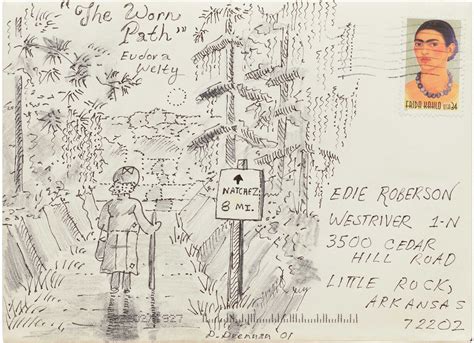 "The Worn
Path"
Eudora
Welty
FRIDA KAHLO USA 34
NATCHEZ
8 MI.
EDIE ROBERSON
WESTRIVER 1-N
3500 CEDAR
HILL ROAD
LITTLE ROCK,
ARKANSAS
72202
01